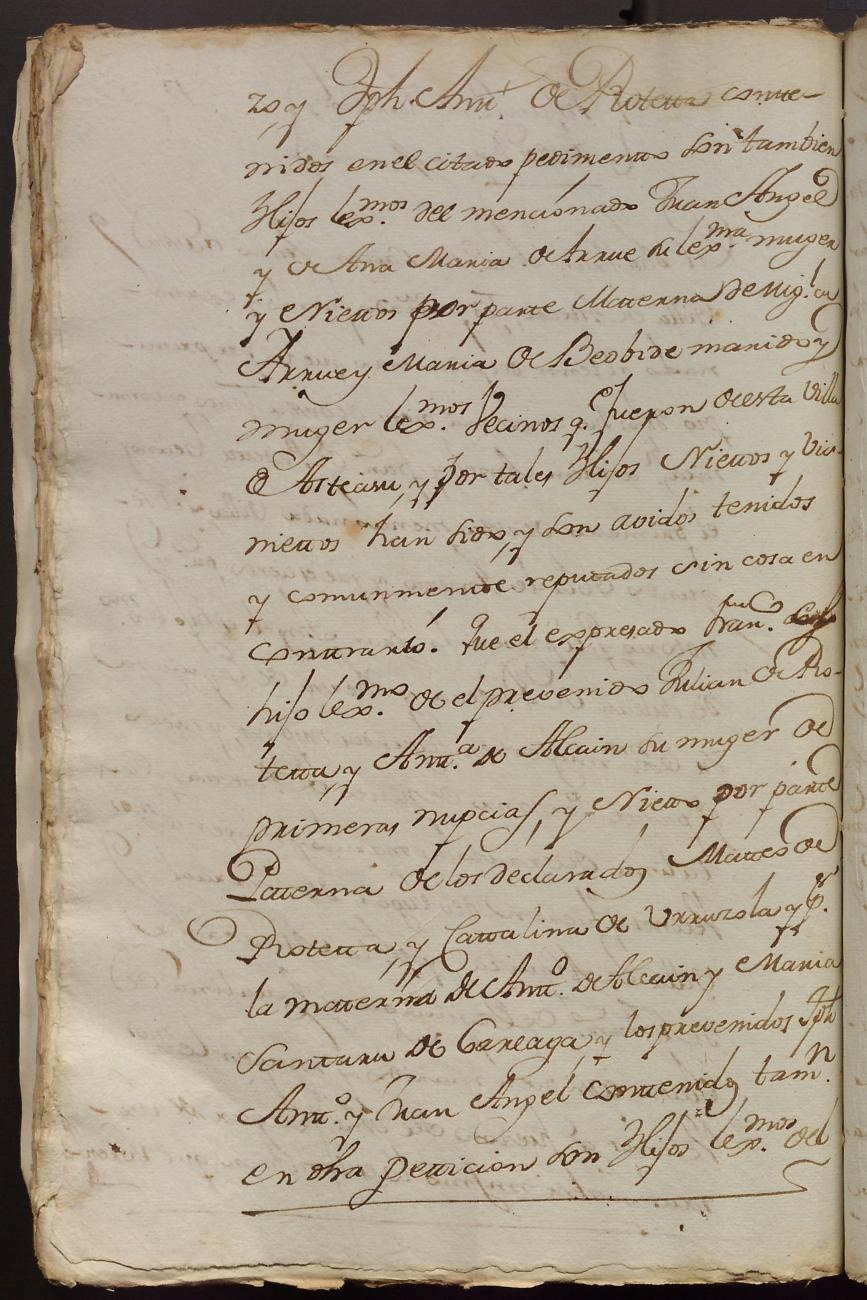 zo, y Jph. Antt.º de Rotetta conte-
nidos en el citado pedimento son tambien
Hijos lex.mos del mencionado Juan Angel
y de Ana Maria de Arrue su lex.ma muger
y Niettos por parte Matterna de Mig.l de
Arrue y Maria de Beobide marido y
muger lex.mos Vecinos q.e fueron de esta Villa
de Asteasu, y por tales Hijos Niettos y Vis-
niettos han sido, y son avidos tenidos
y comunmente reputados sin cosa en
contrario. Que el expresado Fran.co
hijo lex.mo de el prevenido Julian de Ro-
tetta, y Antt.a de Alcain su muger de
primeras nupcias, y Nietto por parte
Patterna de los declarados Matteo de
Rotetta, y Cattalina de Urruzola y p.r
la matterna de Antt.o de Alcain y Maria
Santuru de Gareaga y los prevenidos Jph
Antt.o y Juan Angel conttenidos tam.n
en dha petticion son Hijos lex.mos del